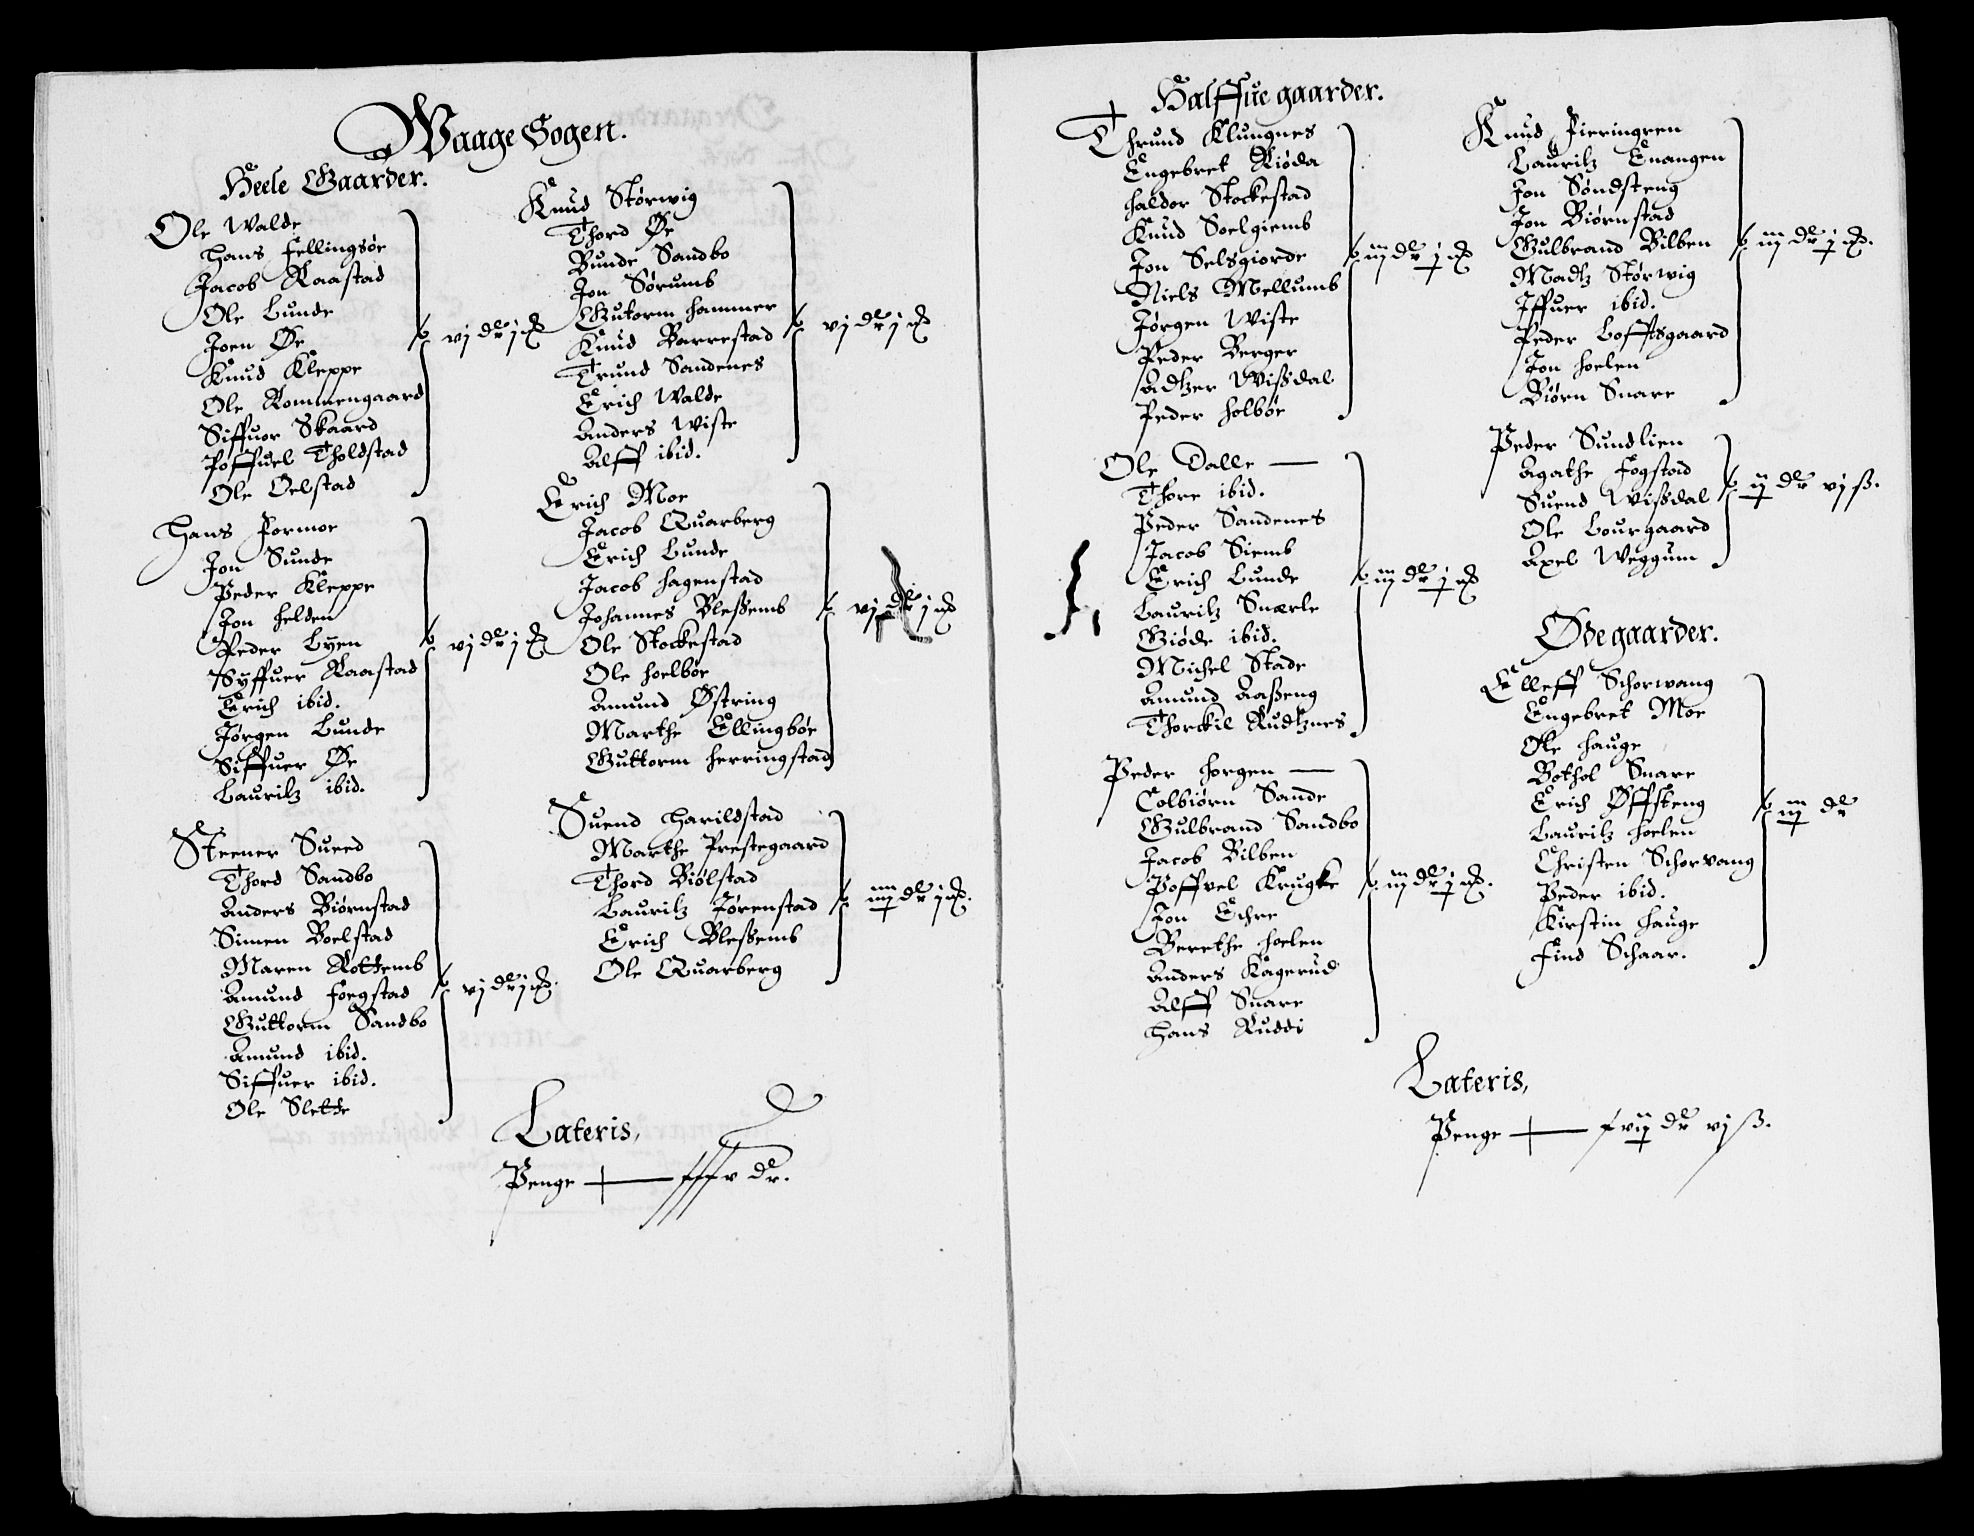 Waage Sogen.
Heele Gaarder.
Ole Walde
Hans Fellingsøe
Jacob Raastad
Ole Lunde
Joen Øe
Knud Kleppe
Ole Kommengaard
Siffuor Skaard
Poffuel Tholdstad
Ole Oelstad
vj dr j
Hans Formoe
Jon Sunde
Peder Kleppe
Jon Helden
Peder Lyen
Syffuer Raastad
Erich ibid.
Jørgen Lunde
Siffuer Øe
Lauritz ibid.
vj dr j
Steener Sueed
Thord Sandbo
Anders Biørnstad
Simen Boelstad
Maren Rottemb
Amund Foegstad
Guttorm Sandbo
Amund ibid.
Siffuer ibid.
Ole Slette
vj dr j
Knud Størwig
Thord Øe
Bunde Sandbo
Jon Sørumb
Gutorm Hammer
Knud Barrestad
Trund Sandenes
Erich Walde
Anders Wiste
Alff ibid.
vj dr j
Erich Moe
Jacob Quarberg
Erich Lunde
Jacob Hagenstad
Johannes Bleßemb
Ole Stockestad
Ole Hoelbøe
Amund Østring
Marthe Ellingbøe
Guttorm Herringstad
vj dr j
Suend Harildstad
Marthe Prestegaard
Thord Biølstad
Lauritz Jørenstad
Erich Bleßemb
Ole Quarberg
iiij dr j
Lateris,
Penge xxxv dr.
Halffue gaarder.
Thrund Klungnes
Engebret Riøda
Haldor Stockestad
Knud Soelgiemb
Jon Selsgiorde
Niels Mellumb
Jørgen Wiste
Peder Berger
Adtzer Wißdal
Peder Holbøe
iij dr j
Ole Dalle
Thore ibid.
Peder Sandenes
Jacob Siemb
Erich Lunde
Lauritz Snærle
Giøde ibid.
Michel Stade
Amund Aaßeng
Thorckil Rudtznes
iij dr j
Peder Horgen
Colbiørn Sande
Gulbrand Sandbo
Jacob Bilben
Poffvel Krugke
Jon Echre
Berethe Hoelen
Anders Kagerud
Alff Snare
Hans Ruddi
iij dr j
Knud Pieringren
Lauritz Enangen
Jon Søndsteng
Jon Biørnstad
Gulbrand Bilben
Madtz Størwig
Iffuer ibid.
Peder Lofftsgaard
Jon Hoelen
Biørn Snare
iij dr j
Peder Sundlien
Agathe Fogstad
Suend Wißdal
Ole Lourgaard
Axel Weggum
ij dr vj ß.
Ødegaarder.
Elleff Schorwang
Engebret Moe
Ole Hauge
Bothol Snare
Erich Øffsteng
Lauritz Hoelen
Christen Schorvang
Peder ibid.
Kirstin Hauge
Find Schaar.
iij dr
Lateris,
Penge xvij dr vj ß.